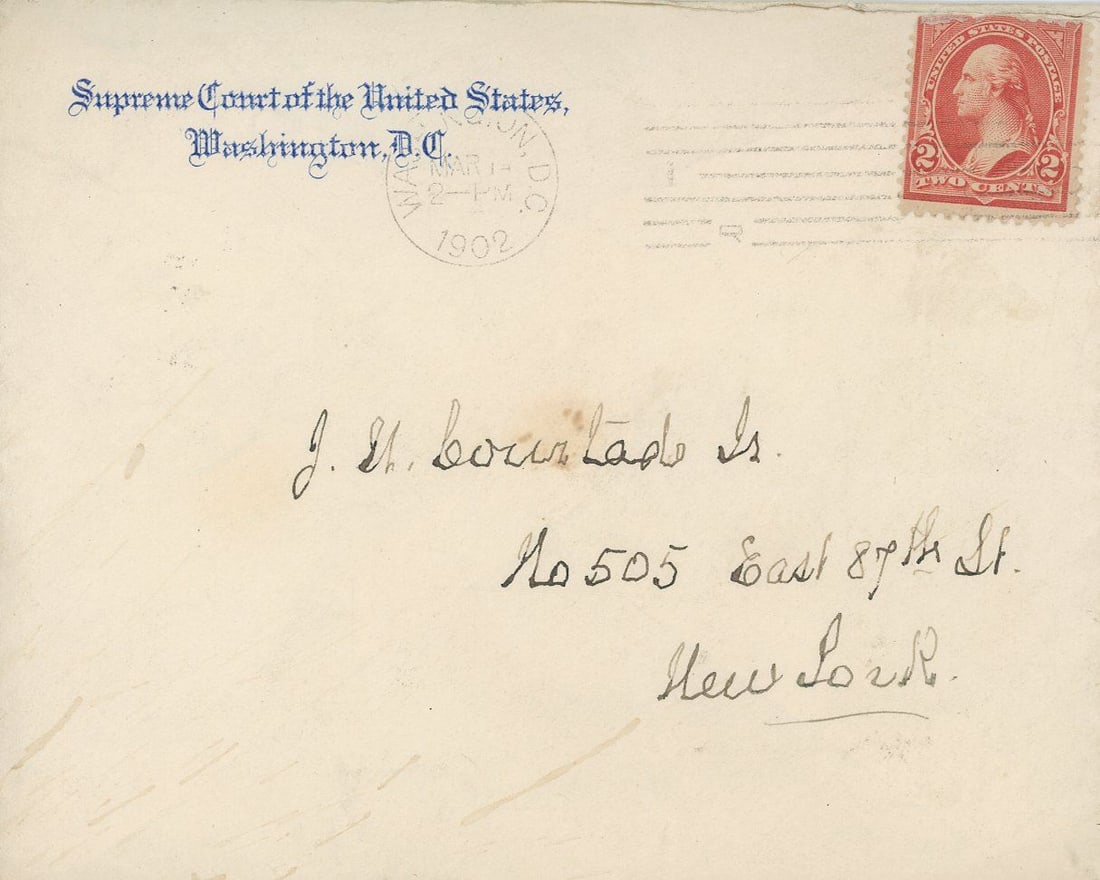 Supreme Court of the United States,
Washington, D.C.
WASHINGTON, D.C.
MAR 14
2—PM
1902
UNITED STATES POSTAGE
2 2
TWO CENTS
R
J. H. Courtade Jr.
No 505 East 87th St.
New York.